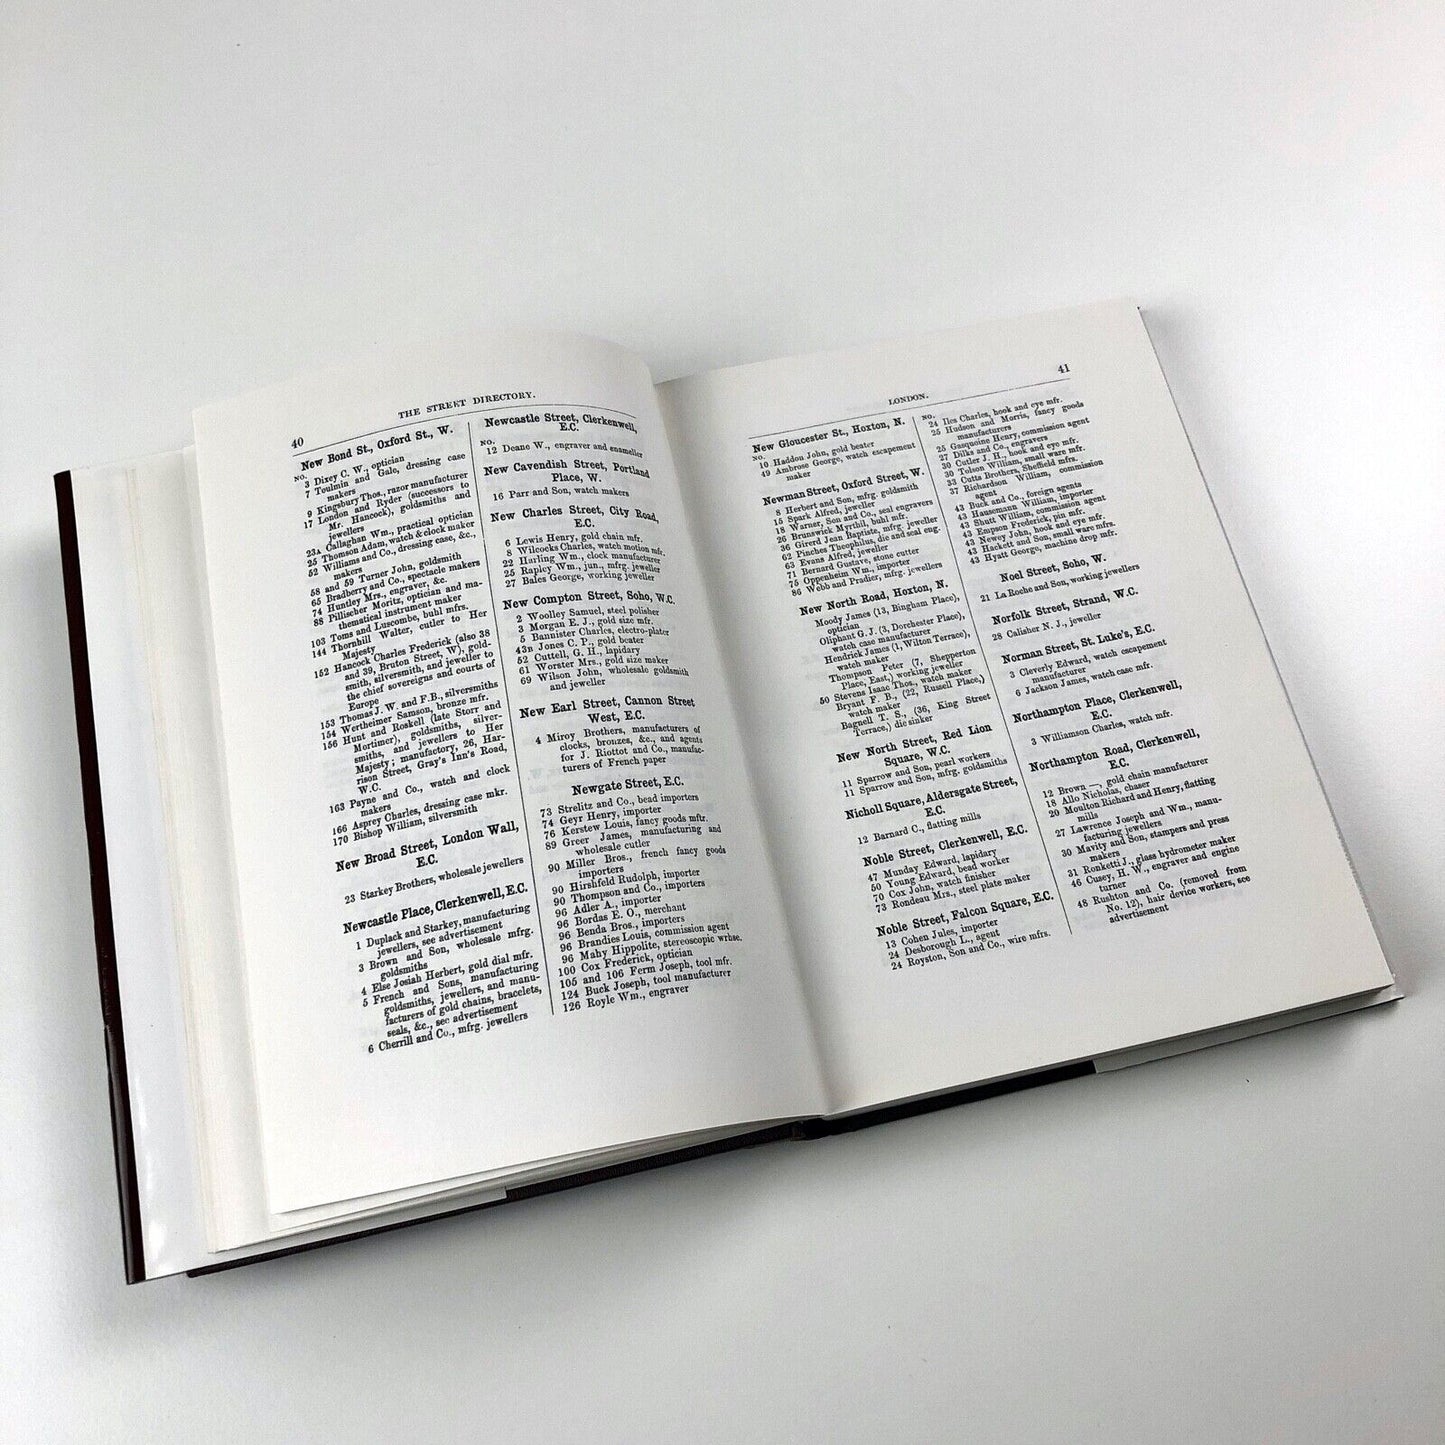 40
THE STREET DIRECTORY.
New Bond St., Oxford St., W.
No.
3 Dixey C. W., optician
7 Toulmin and Gale, dressing case
makers
9 Kingsbury Thos., razor manufacturer
17 London and Ryder (successors to
Mr. Hancock), goldsmiths and
jewellers
23A Callaghan Wm., practical optician
25 Thomson Adam, watch & clock maker
52 Williams and Co., dressing case, &c.,
makers
58 and 59 Turner John, goldsmith
65 Bradberry and Co., spectacle makers
74 Huntley Mrs., engraver, &c.
88 Pillischer Moritz, optician and ma-
thematical instrument maker
103 Toms and Luscombe, buhl mfrs.
144 Thornhill Walter, cutler to Her
Majesty
152 Hancock Charles Frederick (also 38
and 39, Bruton Street, W), gold-
smith, silversmith, and jeweller to
the chief sovereigns and courts of
Europe
153 Thomas J. W. and F.B., silversmiths
154 Wertheimer Samson, bronze mfr.
156 Hunt and Roskell (late Storr and
Mortimer), goldsmiths, silver-
smiths, and jewellers to Her
Majesty; manufactory, 26, Har-
rison Street, Gray's Inn's Road,
W.C.
163 Payne and Co., watch and clock
makers
166 Asprey Charles, dressing case mkr.
170 Bishop William, silversmith
New Broad Street, London Wall,
E.C.
23 Starkey Brothers, wholesale jewellers
Newcastle Place, Clerkenwell, E.C.
1 Duplack and Starkey, manufacturing
jewellers, see advertisement
3 Brown and Son, wholesale mfrg.
goldsmiths
4 Else Josiah Herbert, gold dial mfr.
5 French and Sons, manufacturing
goldsmiths, jewellers, and manu-
facturers of gold chains, bracelets,
seals, &c., see advertisement
6 Cherrill and Co., mfrg. jewellers
Newcastle Street, Clerkenwell,
E.C.
No.
12 Deane W., engraver and enameller
New Cavendish Street, Portland
Place, W.
16 Parr and Son, watch makers
New Charles Street, City Road,
E.C.
6 Lewis Henry, gold chain mfr.
8 Wilcocks Charles, watch motion mfr.
22 Harling Wm., clock manufacturer
25 Rapley Wm., jun., mfrg. jeweller
27 Bales George, working jeweller
New Compton Street, Soho, W.C.
2 Woolley Samuel, steel polisher
3 Morgan E. J., gold size mfr.
5 Bannister Charles, electro-plater
43B Jones C. P., gold beater
52 Cuttell, G. H., lapidary
61 Worster Mrs., gold size maker
69 Wilson John, wholesale goldsmith
and jeweller
New Earl Street, Cannon Street
West, E.C.
4 Miroy Brothers, manufacturers of
clocks, bronzes, &c., and agents
for J. Riottot and Co., manufac-
turers of French paper
Newgate Street, E.C.
73 Strelitz and Co., bead importers
74 Geyr Henry, importer
76 Kerstew Louis, fancy goods mftr.
89 Greer James, manufacturing and
wholesale cutler
90 Miller Bros., french fancy goods
importers
90 Hirshfeld Rudolph, importer
90 Thompson and Co., importers
96 Adler A., importer
96 Bordas E. O., merchant
96 Benda Bros., importers
96 Brandies Louis, commission agent
96 Mahy Hippolite, stereoscopic wrhse.
100 Cox Frederick, optician
105 and 106 Ferm Joseph, tool mfr.
124 Buck Joseph, tool manufacturer
126 Royle Wm., engraver
LONDON.
41
New Gloucester St., Hoxton, N.
No.
10 Haddon John, gold beater
49 Ambrose George, watch escapement
maker
Newman Street, Oxford Street, W.
8 Herbert and Son, mfrg. goldsmith
15 Spark Alfred, jeweller
18 Warner, Son and Co., seal engravers
26 Brunswick Myrthil, buhl mfr.
36 Girerd Jean Baptiste, mfrg. jeweller
62 Pinches Theophilus, die and seal eng.
63 Evans Alfred, jeweller
71 Bernard Gustave, stone cutter
75 Oppenheim Wm., importer
86 Webb and Pradier, mfrg. jewellers
New North Road, Hoxton, N.
Moody James (13, Bingham Place),
optician
Oliphant G. J. (3, Dorchester Place),
watch case manufacturer
Hendrick James (1, Wilton Terrace),
watch maker
Thompson Peter (7, Shepperton
Place, East,) working jeweller
50 Stevens Isaac Thos., watch maker
Bryant F. B., (22, Russell Place,)
watch maker
Bagnell T. S., (36, King Street
Terrace,) die sinker
New North Street, Red Lion
Square, W.C.
11 Sparrow and Son, pearl workers
11 Sparrow and Son, mfrg. goldsmiths
Nicholl Square, Aldersgate Street,
E.C.
12 Barnard C., flatting mills
Noble Street, Clerkenwell, E.C.
47 Munday Edward, lapidary
50 Young Edward, bead worker
70 Cox John, watch finisher
73 Rondeau Mrs., steel plate maker
Noble Street, Falcon Square, E.C.
13 Cohen Jules, importer
24 Desborough L., agent
24 Royston, Son and Co., wire mfrs.
No.
24 Iles Charles, hook and eye mfr.
25 Hudson and Morris, fancy goods
manufacturers
25 Gasquoine Henry, commission agent
27 Dilks and Co., engravers
30 Cutler J. H., hook and eye mfr.
30 Tolson William, small ware mfr.
33 Cutts Brothers, Sheffield mfrs.
37 Richardson William, commission
agent
43 Buck and Co., foreign agents
43 Hausemann William, importer
43 Shutt William, commission agent
43 Empson Frederick, pin mfr.
43 Newey John, hook and eye mfr.
43 Hackett and Son, small ware mfrs.
43 Hyatt George, machine drop mfr.
Noel Street, Soho, W.
21 La Roche and Son, working jewellers
Norfolk Street, Strand, W.C.
28 Calisher N. J., jeweller
Norman Street, St. Luke's, E.C.
3 Cleverly Edward, watch escapement
manufacturer
6 Jackson James, watch case mfr.
Northampton Place, Clerkenwell,
E.C.
3 Williamson Charles, watch mfr.
Northampton Road, Clerkenwell,
E.C.
12 Brown —, gold chain manufacturer
18 Allo Nicholas, chaser
20 Moulton Richard and Henry, flatting
mills
27 Lawrence Joseph and Wm., manu-
facturing jewellers
30 Mavity and Son, stampers and press
makers
31 Ronketti J., glass hydrometer maker
46 Cusey, H. W., engraver and engine
turner
48 Rushton and Co. (removed from
No. 12), hair device workers, see
advertisement